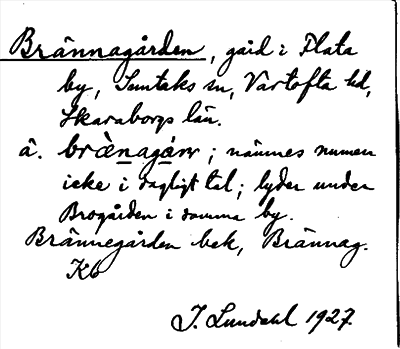 Brännagården, gård i Flata
by, Suntaks sn, Vartofta hd,
Skaraborgs län.
â. brànagá̱ṇ; nämnes numera
icke i dagligt tal; lyder under
Brogården i samma by.
Brännegården bek, Brännag.
Kb
J. Lundahl 1927.